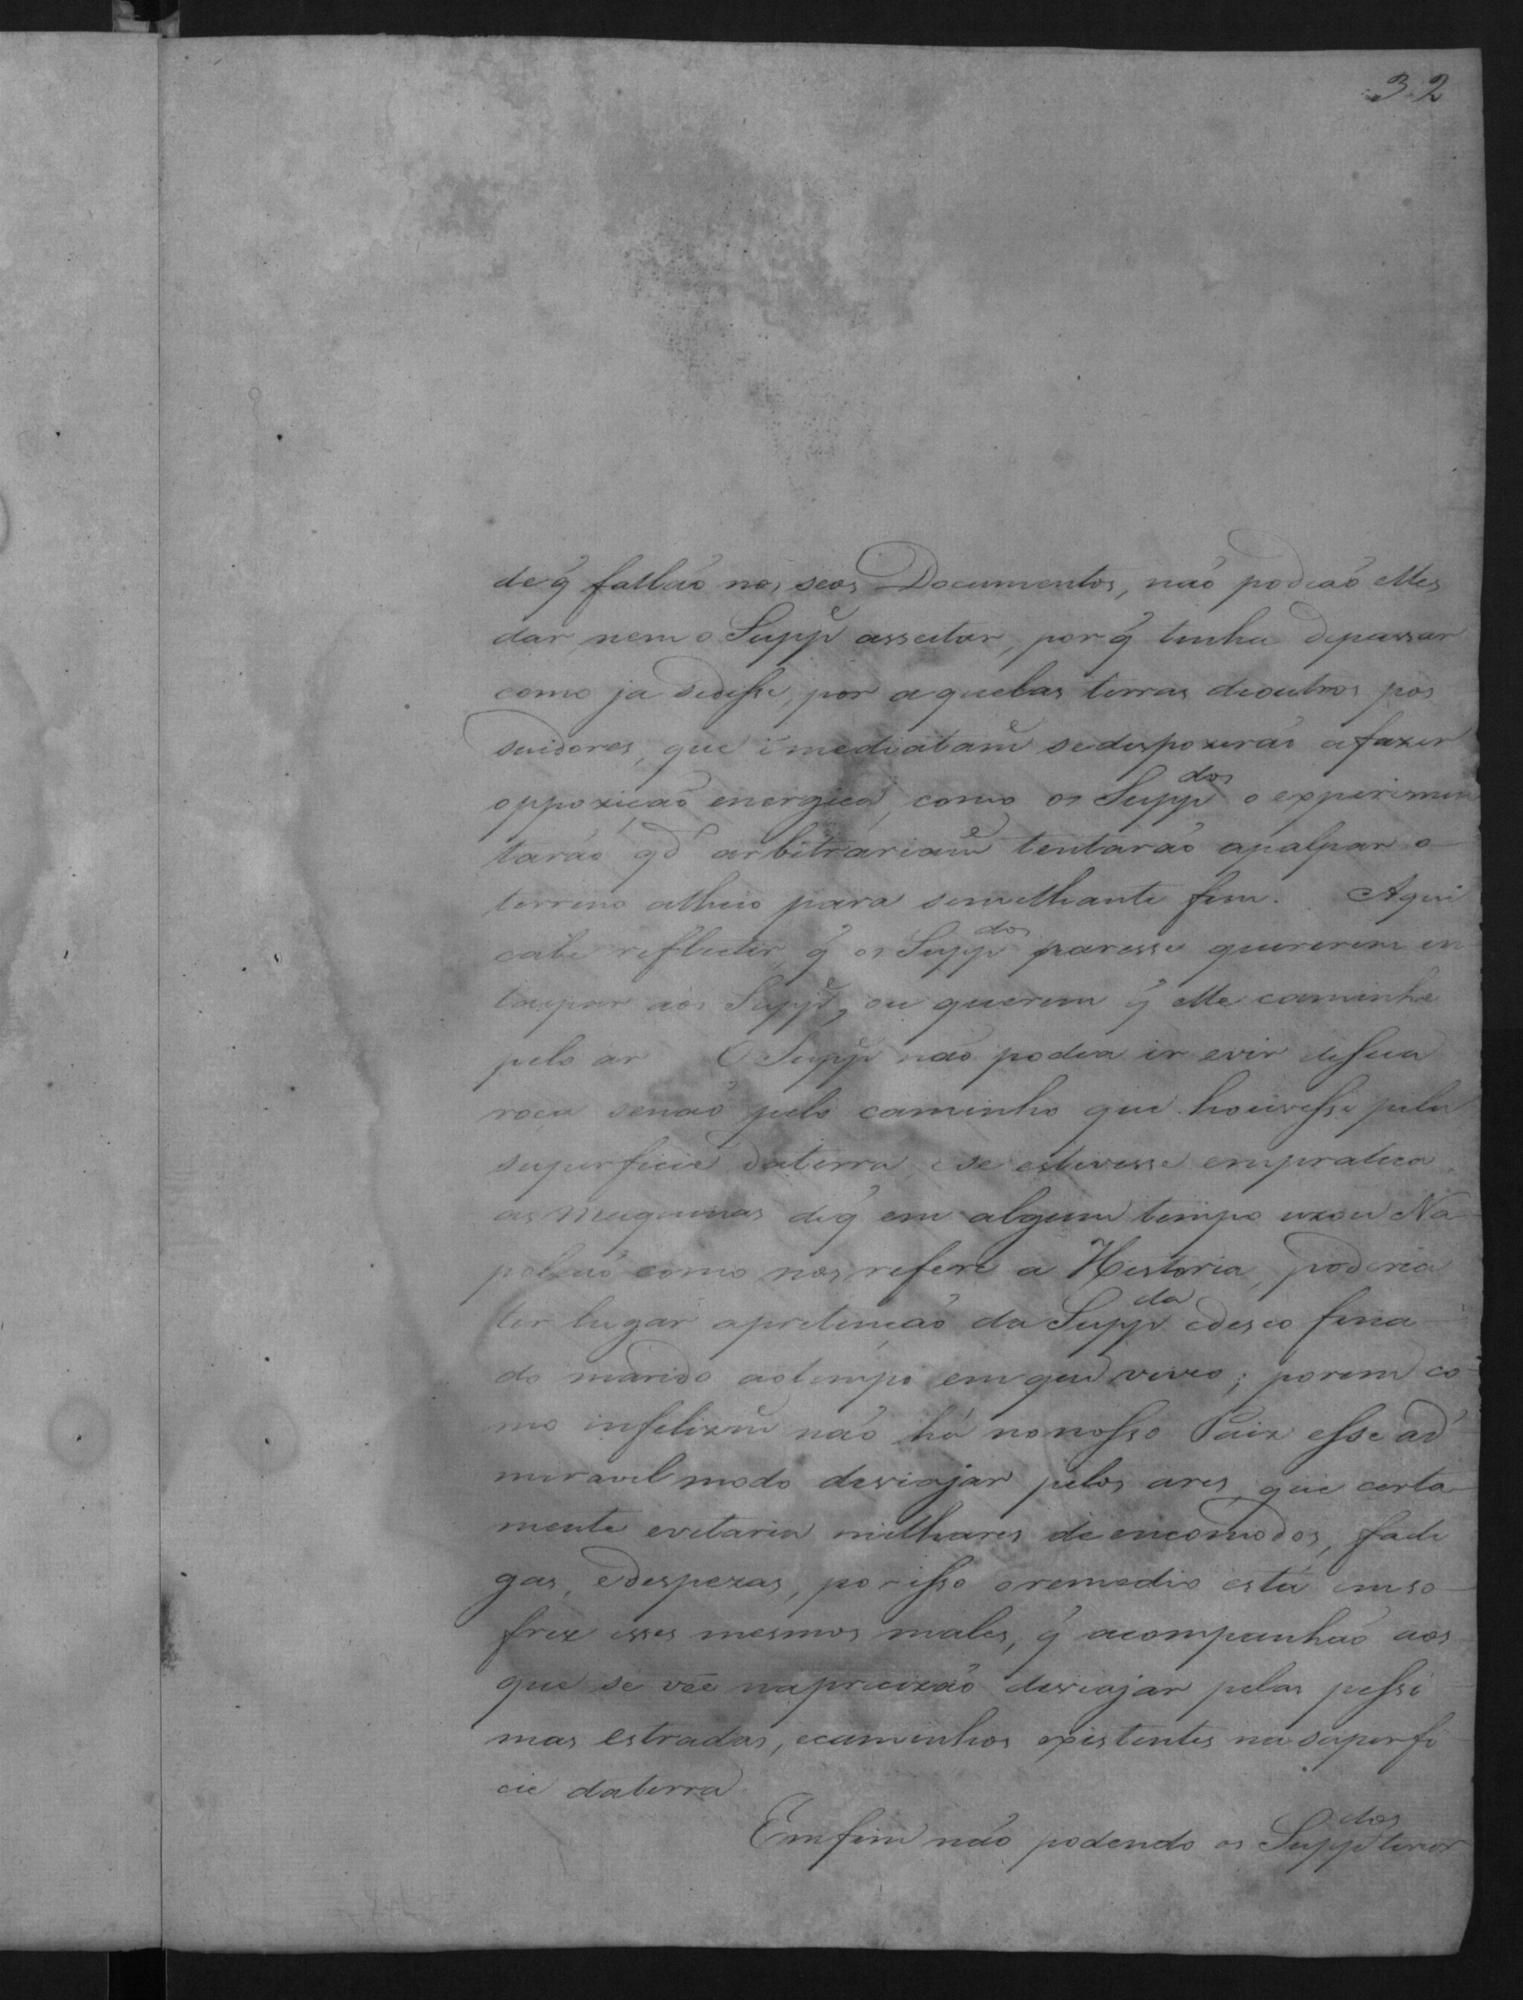 32
de q̃ fallão nos seos Documentos, não podião elles
dar nem o Supp.e asseitar, por q̃ tinha depassar
como ja sedisse, por aquelas terras deoutros pos
suidores, que imediatam.e sedespozerão afazer
oppozição energica, como os Supp.dos o experimen
tarão qd.o arbitrariam.e tentarão apalpar o
terreno alheio para semelhante fim. Aqui
cabe reflectir, q̃ os Supp.dos paresse quererem en
taipar aos Supp.e, ou querem q̃ elle caminhe
pelo ar O Supp.e não podia ir evir desua
roça senão pelo caminho que houvesse pela
superficie daterra, e se estivesse empratica
as maquinas deq̃ em algum tempo uzou Na
poleão como nos refere a Historia, poderia
ter lugar apretenção da Supp.da edeseo fina
do marido aotempo emque viveo; porem co
mo infelizm.e não há nonosso Paiz esse ad
miravel modo deviajar pelos ares, que certa
mente evitaria milhares deencomodos, fadi
gas, edespezas, porisso oremedio está emso
frer esses mesmos males, q̃ acompanhão aos
que se vêe naprecizão deviajar pelas pessi
mas estradas, ecaminhos existentes na superfi
cie daterra
Emfim não podendo os Supp.dos terem